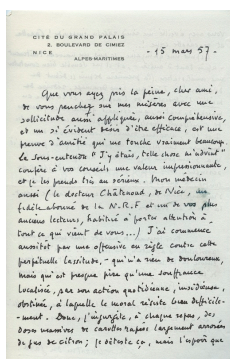 CITÉ DU GRAND PALAIS
2, BOULEVARD DE CIMIEZ
NICE
ALPES-MARITIMES
- 15 mars 57 -
Que vous ayez pris la peine, cher ami,
de vous pencher sur mes misères avec une
sollicitude aussi appliquée, aussi compréhensive,
et un si évident désir d'être efficace, est une
preuve d'amitié qui me touche vraiment beaucoup.
Le sous-entendu "J'y étais, telle chose m'advint"
confère à vos conseils une valeur impressionnante
et je les prends très au sérieux. Mon médecin
aussi (le docteur Châtenoud, de Nice, un
fidèle abonné de la N.R.F et un de vos plus
anciens lecteurs, habitué à porter attention à
tout ce qui vient de vous...) J'ai commencé
aussitôt par une offensive en règle contre cette
perpétuelle lassitude, - qui n'a rien de douloureux,
mais qui est presque pire qu'une souffrance
localisée, par son action quotidienne, insidieuse,
obstinée, à laquelle le moral résiste bien difficile-
-ment. Donc, j'ingurgite, à chaque repas, des
doses massives de carottes rapées largement arrosées
de jus de citron; je déteste ça, mais l'espoir que